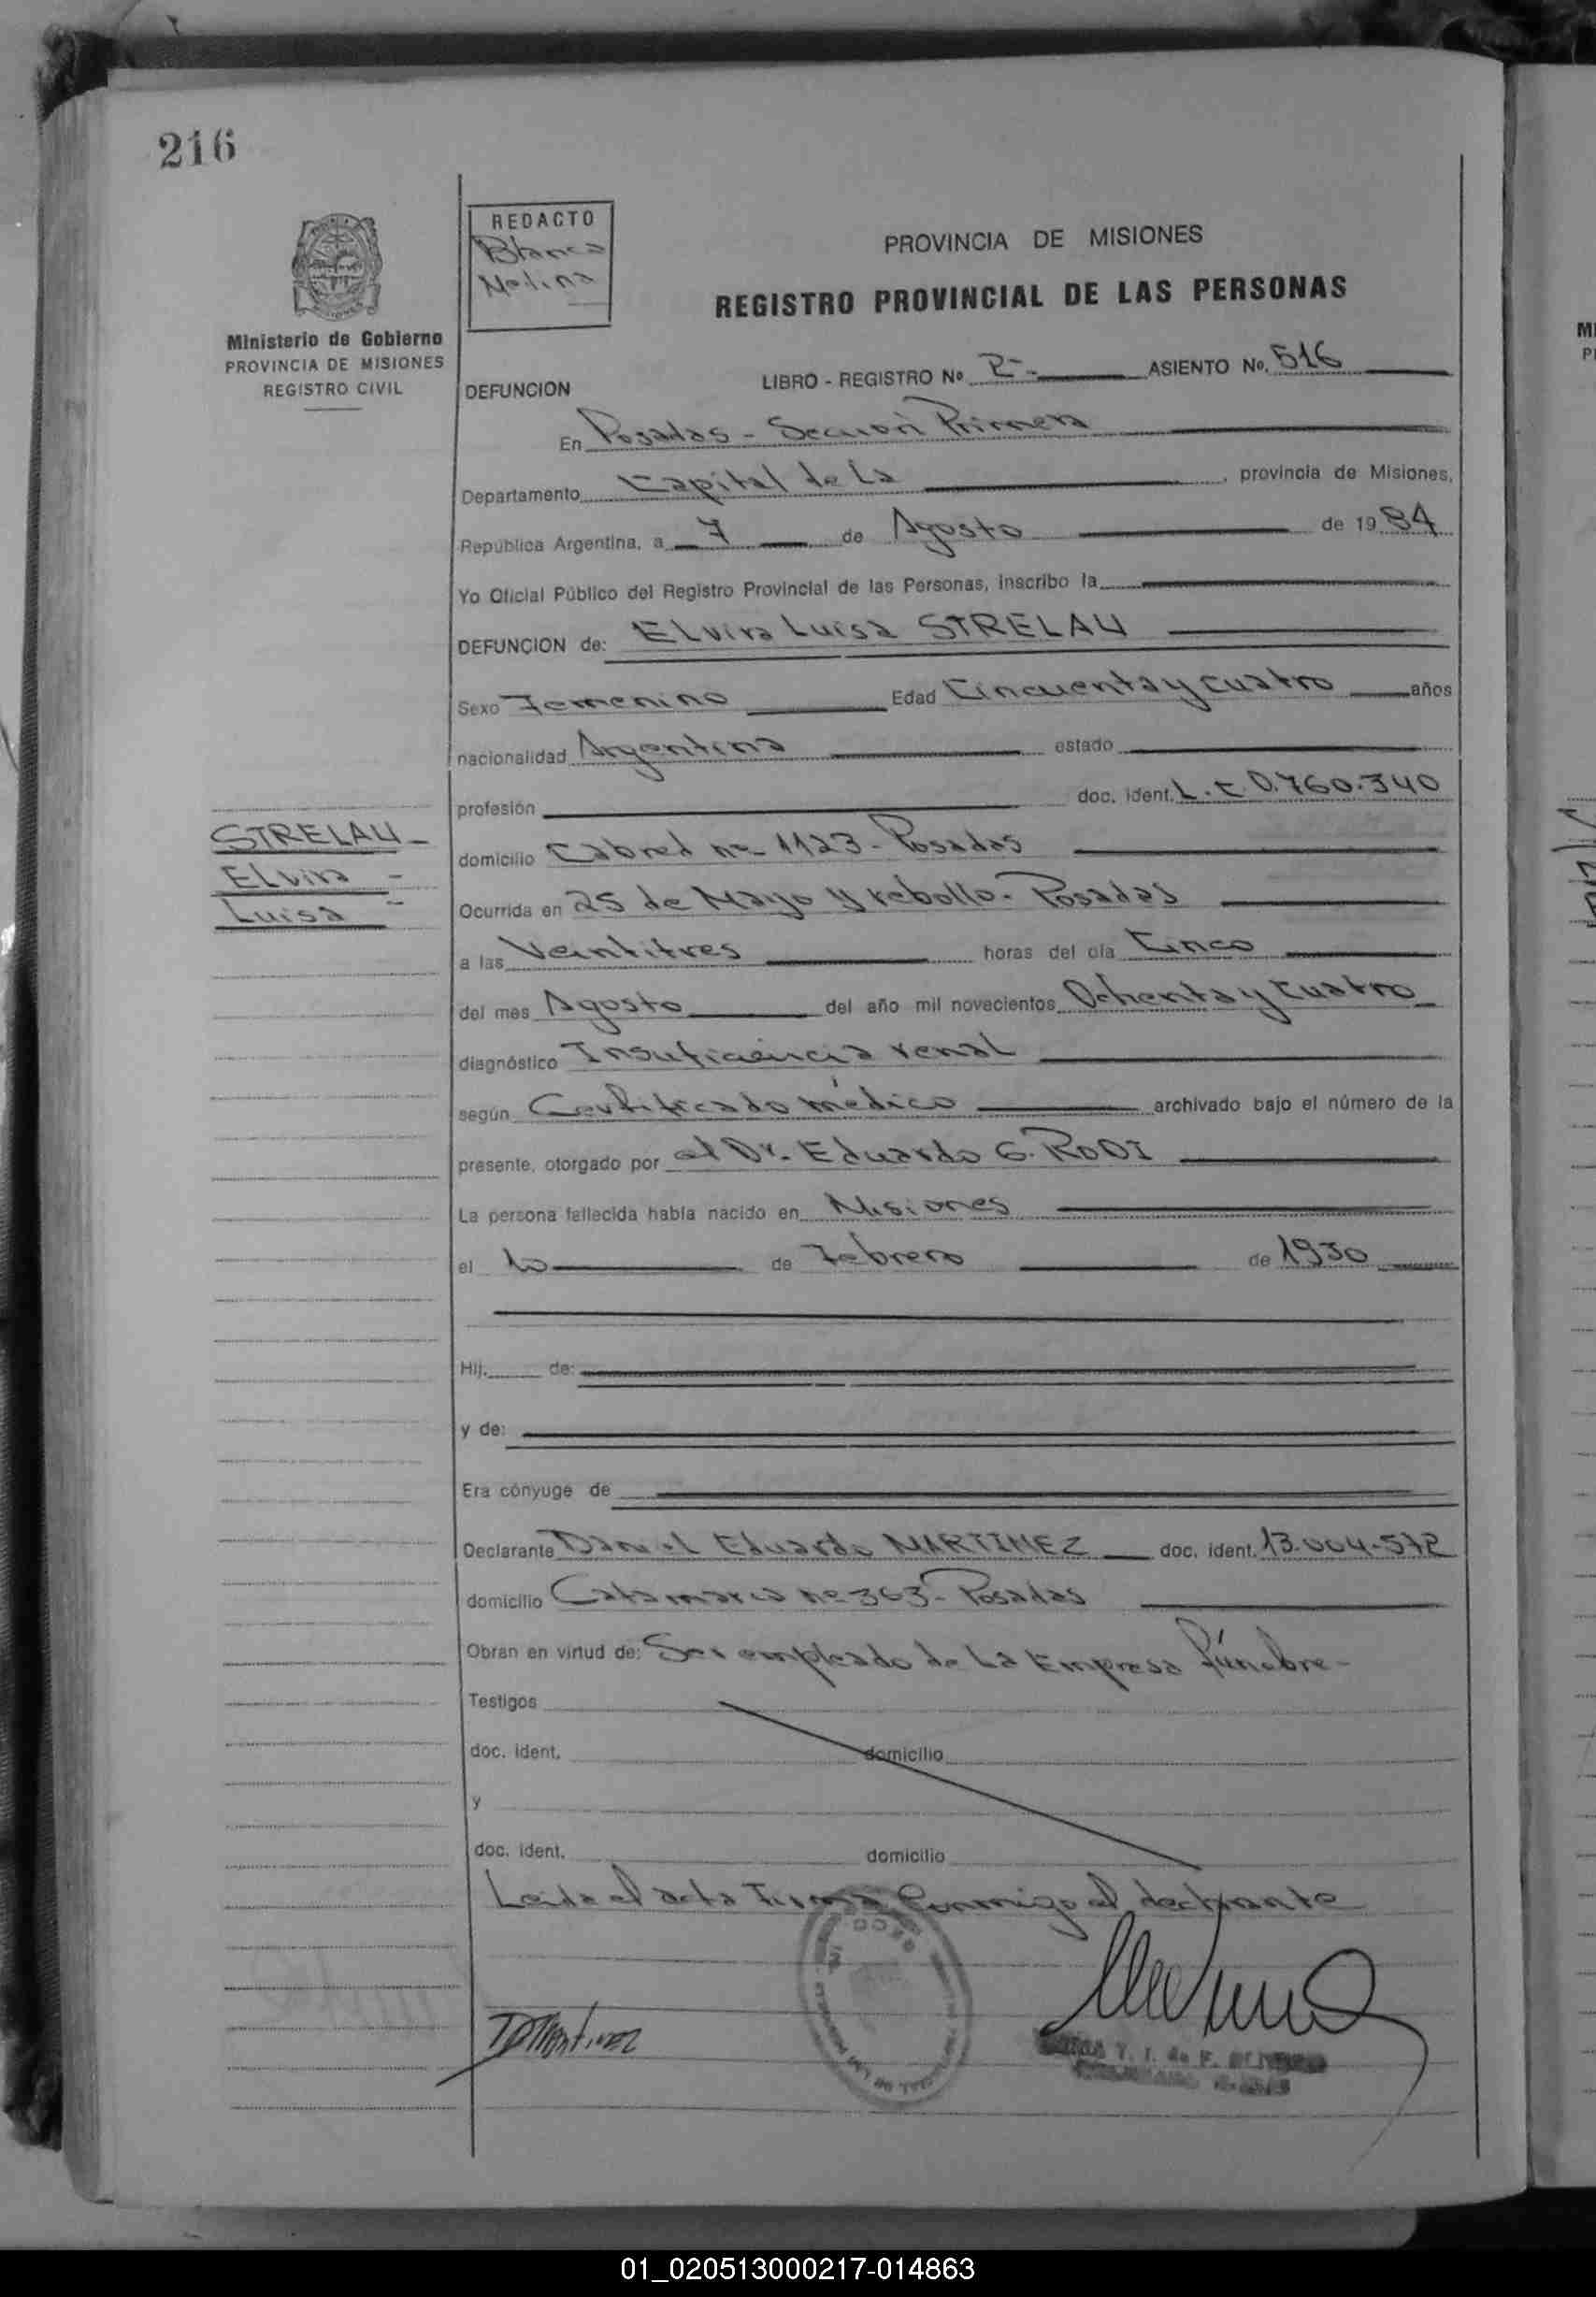 216
REDACTO
Blanca
Molina
Ministerio de Gobierno
PROVINCIA DE MISIONES
REGISTRO CIVIL
PROVINCIA DE MISIONES
REGISTRO PROVINCIAL DE LAS PERSONAS
DEFUNCION LIBRO - REGISTRO Nº 2- ASIENTO Nº. 516
En Posadas - Sección Primera
Departamento Capital de la , provincia de Misiones,
República Argentina, a 7 de Agosto de 1984
Yo Oficial Público del Registro Provincial de las Personas, inscribo la
DEFUNCION de: Elvira Luisa STRELAU
Sexo Femenino Edad Cincuenta y cuatro años
nacionalidad Argentina estado
profesión doc. ident. L.C 0.760.340
STRELAU-
Elvira -
Luisa -
domicilio Cabred nº 1123 - Posadas
Ocurrida en 25 de Mayo y rebollo - Posadas
a las Veintitres horas del día Cinco
del mes Agosto del año mil novecientos Ochenta y cuatro
diagnóstico Insuficiencia renal
según Certificado médico archivado bajo el número de la
presente, otorgado por el Dr. Eduardo G. RODI
La persona fallecida había nacido en Misiones
el 10 de Febrero de 1930
Hij. de:
y de:
Era cónyuge de
Declarante Daniel Eduardo MARTINEZ doc. ident. 13.004.572
domicilio Catamarca nº 363 - Posadas
Obran en virtud de: Ser empleado de la Empresa fúnebre -
Testigos
doc. ident. domicilio
y
doc. ident. domicilio
Leida el acta Firma Conmigo el declarante
01_020513000217-014863